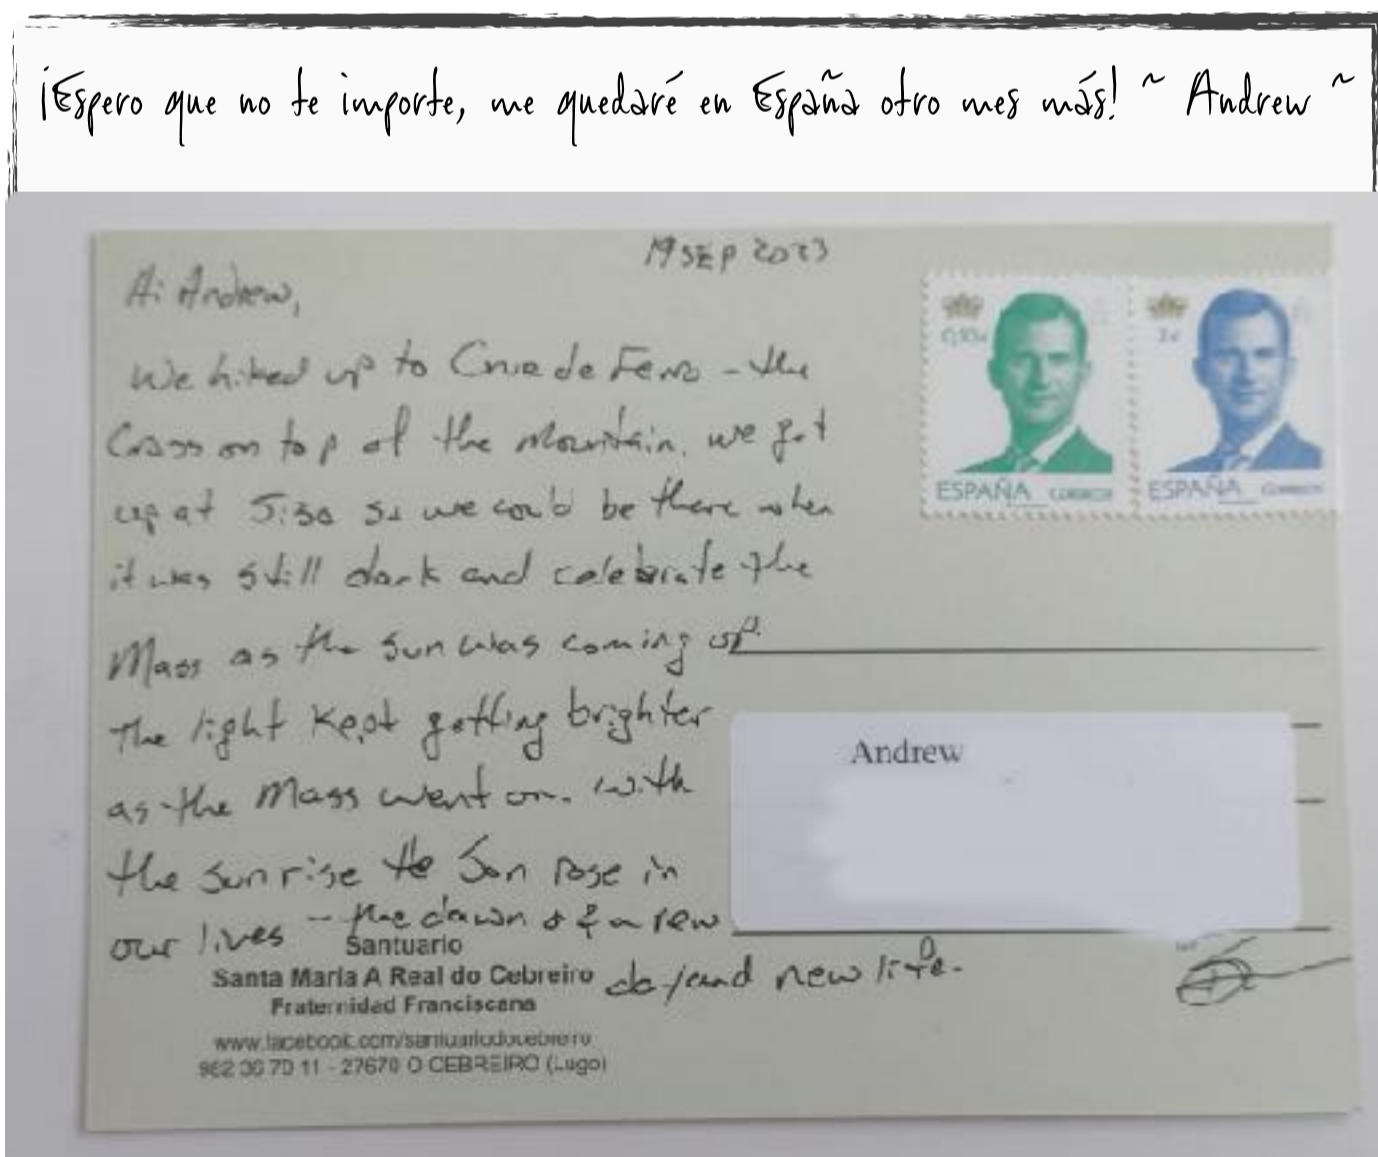 ¡Espero que no te importe, me quedaré en España otro mes más! ~ Andrew ~
19 SEP 2023
Hi Andrew,
We hiked up to Cruz de Ferro - the
Cross on top of the mountain. we got
up at 5:30 so we could be there when
it was still dark and celebrate the
Mass as the sun was coming up.
The light kept getting brighter
as the Mass went on. with
the sunrise the Son rose in
our lives - the dawn of a new
day and new life.
ESPAÑA CORREOS
ESPAÑA CORREOS
Andrew
Santuario
Santa María A Real do Cebreiro
Fraternidad Franciscana
www.facebook.com/santuariodocebreiro
- 27670 O CEBREIRO (Lugo)